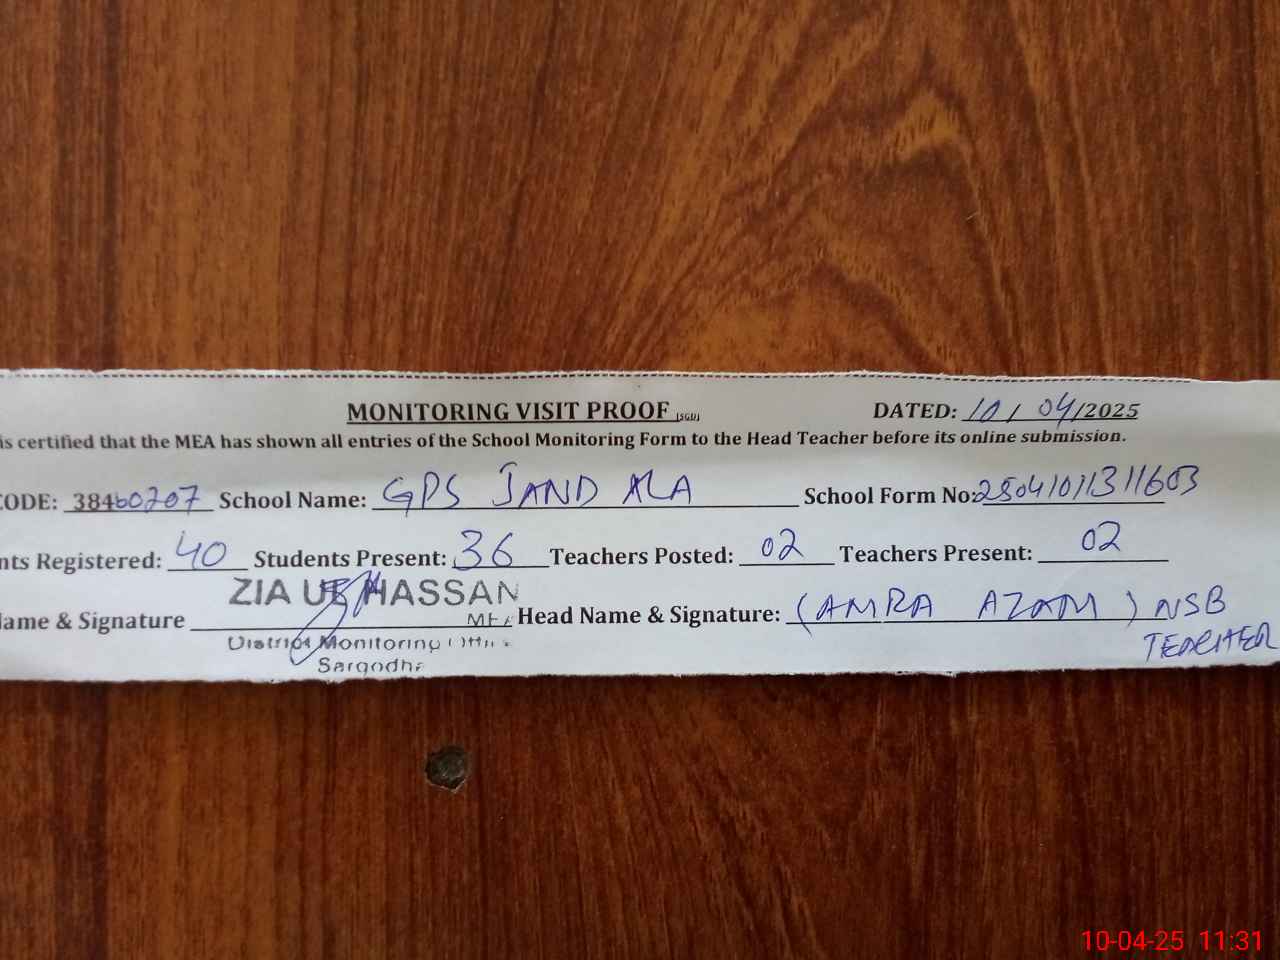 MONITORING VISIT PROOF [SGD] DATED: 10/04/2025
is certified that the MEA has shown all entries of the School Monitoring Form to the Head Teacher before its online submission.
CODE: 38460707 School Name: GPS JAND ALA School Form No: 25041011311603
nts Registered: 40 Students Present: 36 Teachers Posted: 02 Teachers Present: 02
ZIA UL HASSAN
ame & Signature MEA Head Name & Signature: (AMRA AZAM) NSB
TEACHER
District Monitoring Office
Sargodha
10-04-25 11:31